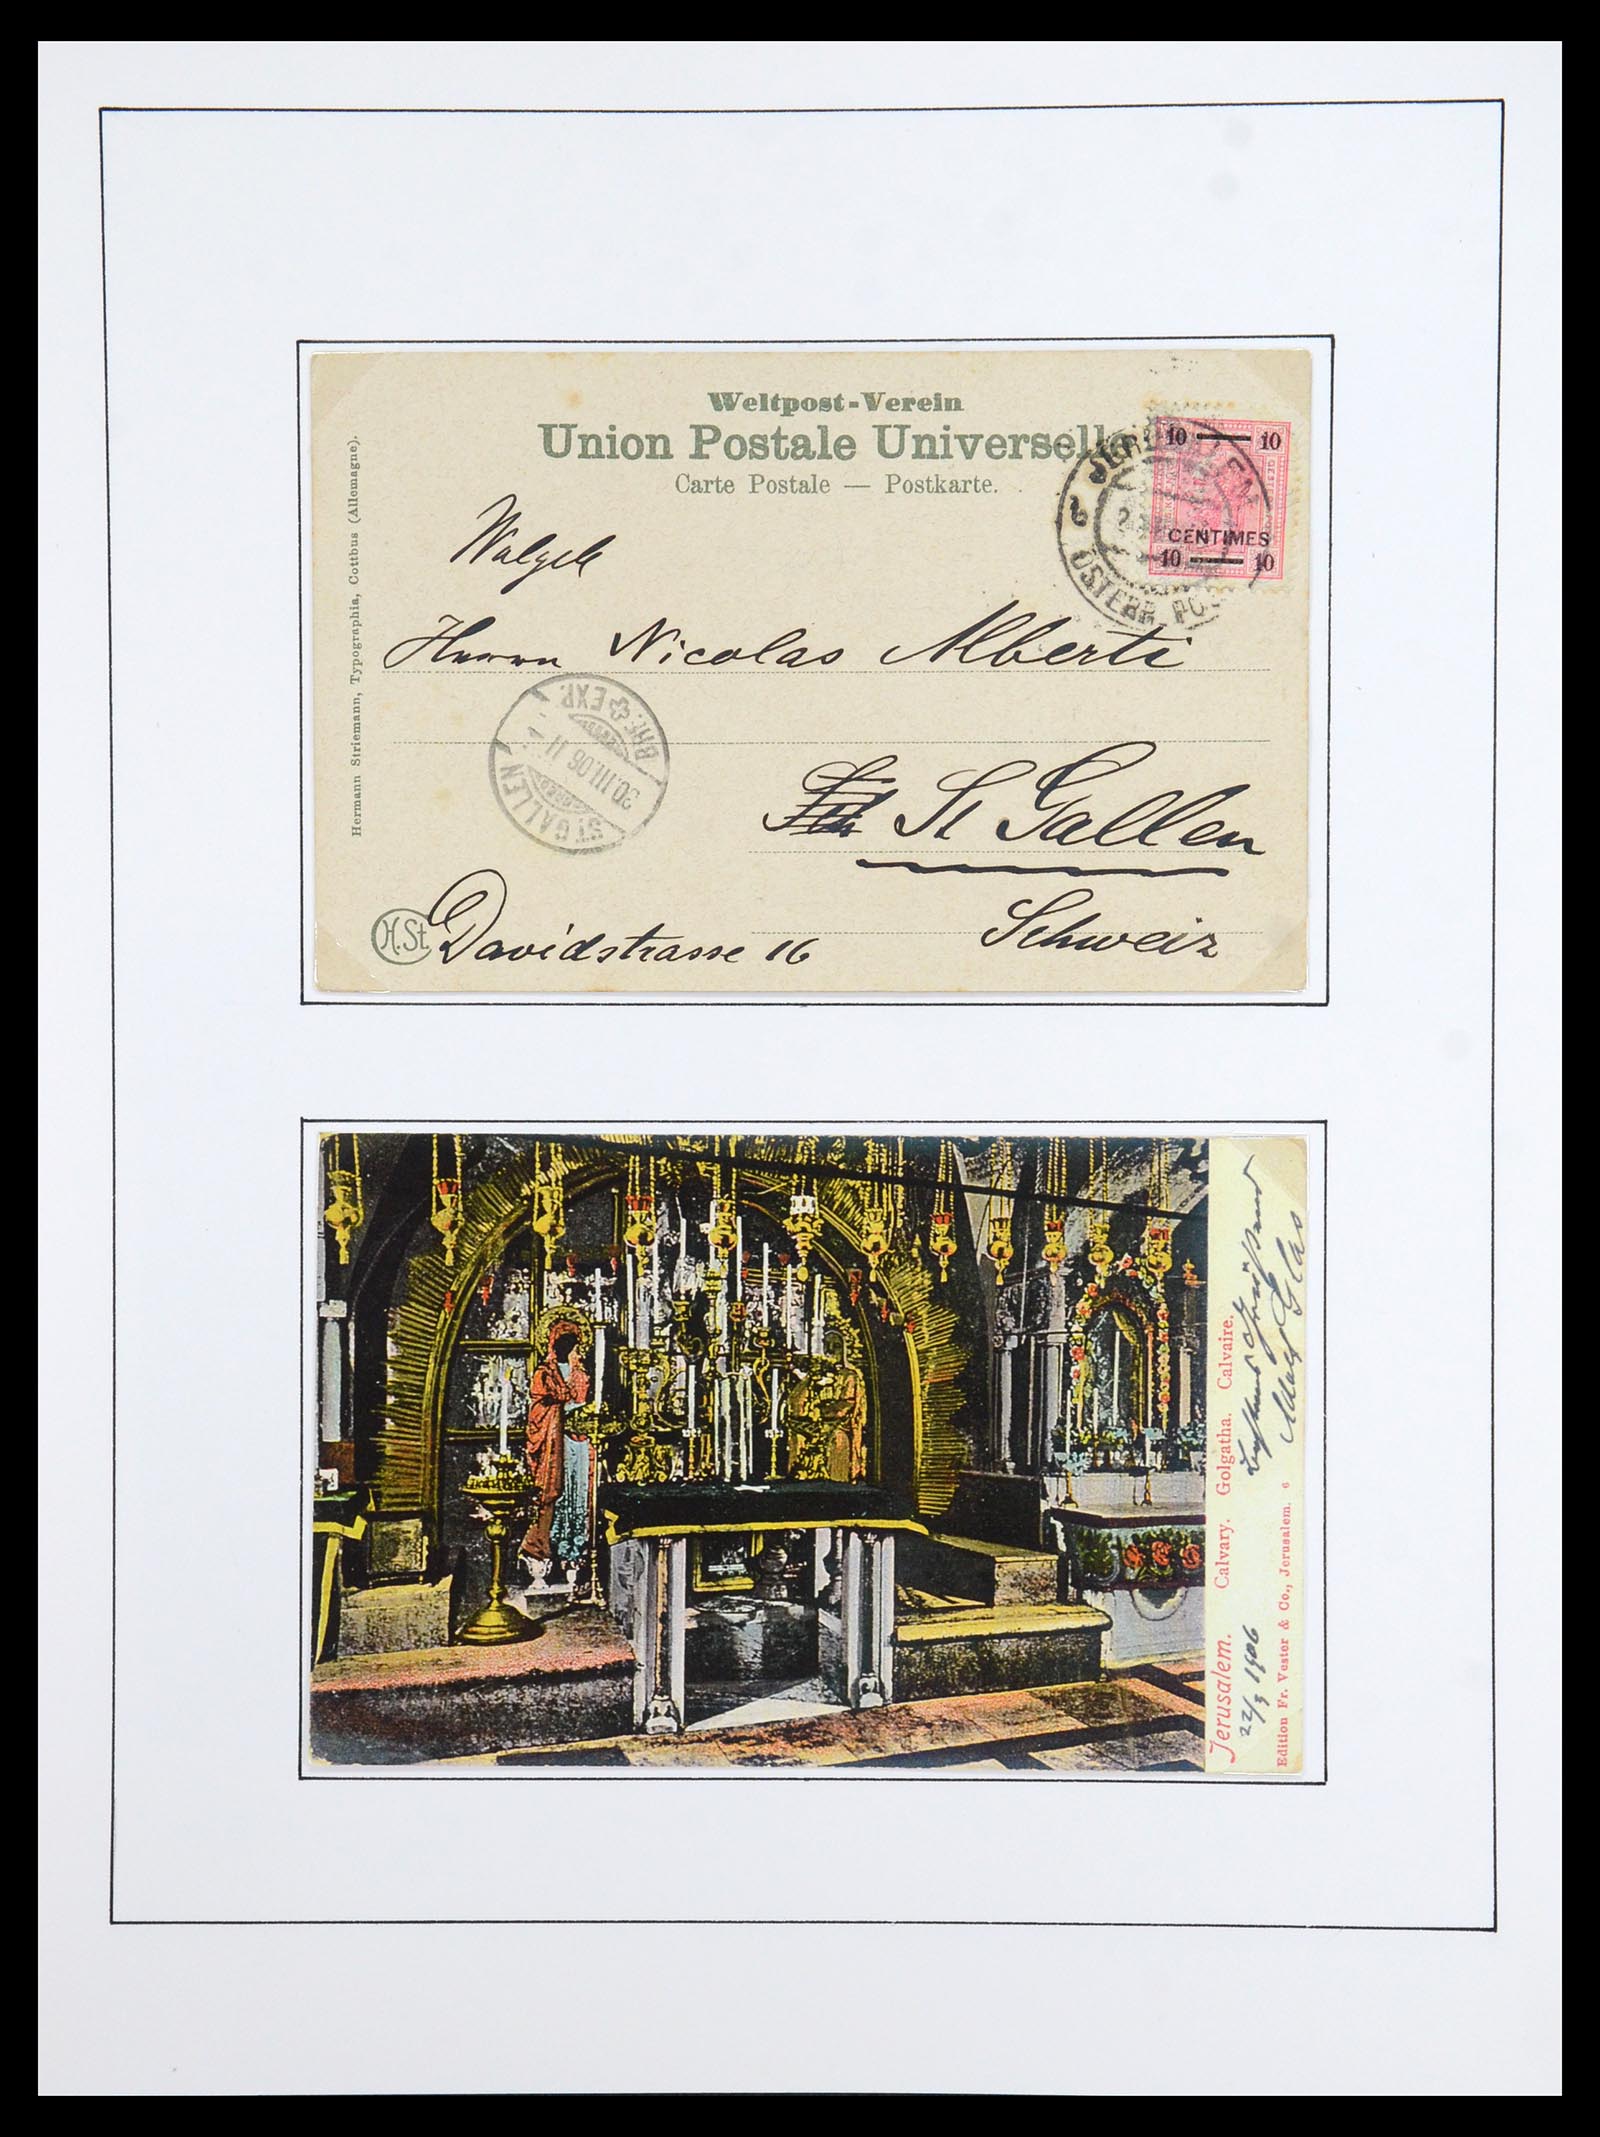 Weltpost-Verein
Union Postale Universelle
Carte Postale — Postkarte.
10 10
CENTIMES
10 10
JERUSALEM
ÖSTERR. PO
Herrn Nicolas Alberti
BRF. EXP.
30.III.06 11
ST. GALLEN
St Gallen
Schweiz
Davidstrasse 16
H.St.
Hermann Striemann, Typographia, Cottbus (Allemagne).
Jerusalem. Calvary. Golgatha. Calvaire.
22/3 1906
Edition Fr. Vester & Co., Jerusalem. 6